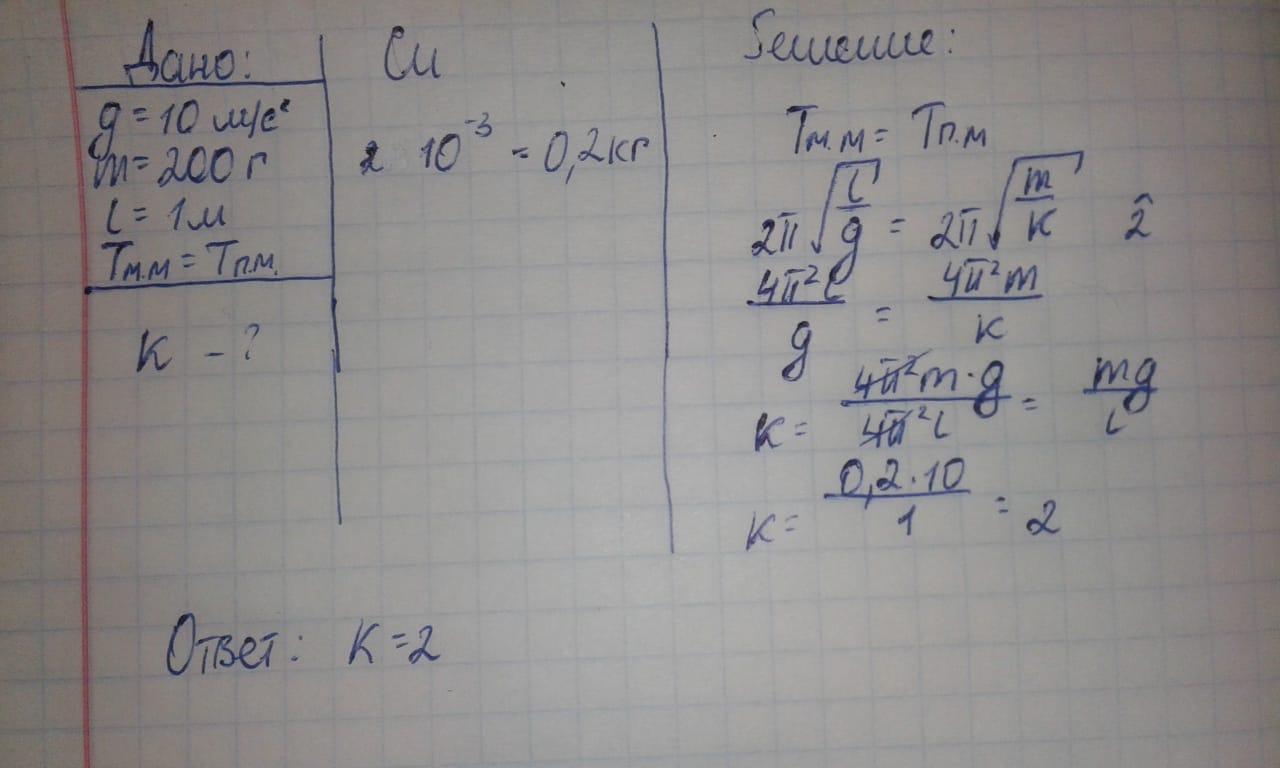 Дано:
g = 10 м/с²
m = 200 г
l = 1 м
Tм.м = Tп.м.
K - ?
Си
2 10⁻³ = 0,2 кг
Решение:
Tм.м = Tп.м
2π√(l/g) = 2π√(m/K) ^2
4π²l/g = 4π²m/K
K = 4π²m·g/4π²l = mg/l
K = 0,2·10/1 = 2
Ответ: K = 2